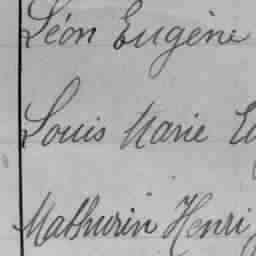 Léon Eugène
Louis Marie
Mathurin Henri